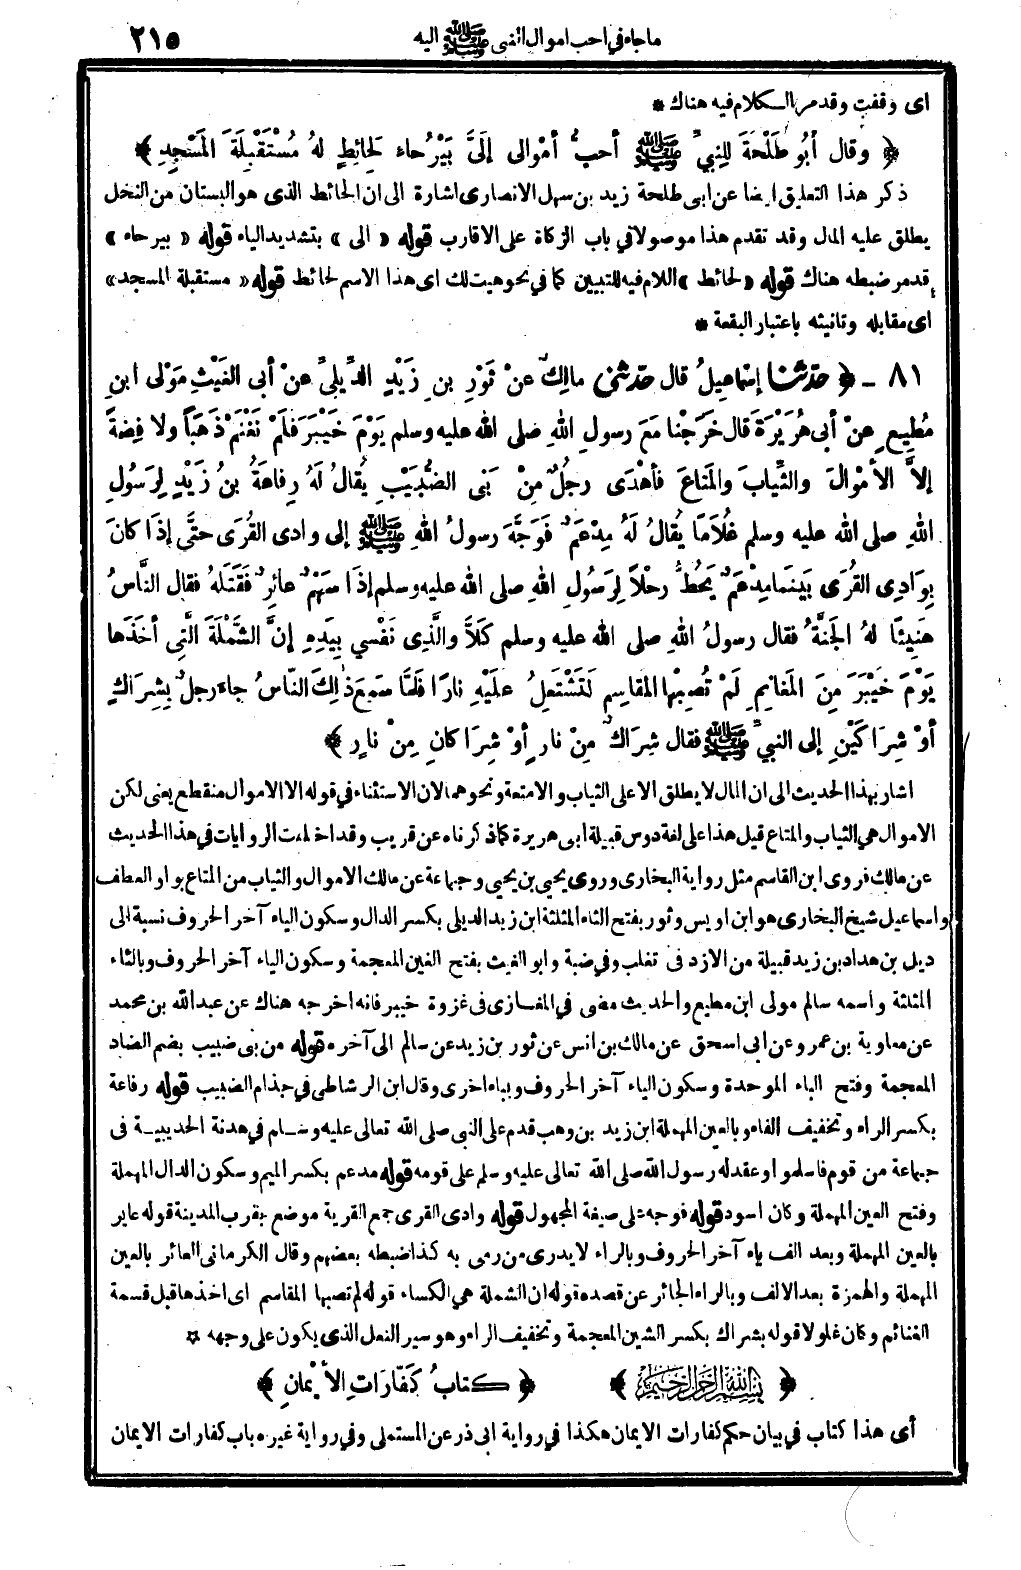 ماجاء في احب اموال النبى ﷺ اليه ٢١٥
اى وقفت وقد مر الكلام فيه هناك *
﴿ وقال أبُو طَلْحَةَ لِلنبيِّ ﷺ أحبُّ أمْوالى إلَيَّ بَيْرُحاء لِحَائِطٍ لهُ مُسْتَقْبِلَةَ المَسْجِدِ ﴾
ذكر هذا التعليق ايضا عن ابى طلحة زيد بن سهل الانصارى اشارة الى ان الحائط الذى هو البستان من النخل
يطلق عليه المال وقد تقدم هذا موصولا في باب الزكاة على الاقارب قوله « الى » بتشديد الياء قوله « بيرحاء »
قد مر ضبطه هناك قوله « لحائط » اللام فيه للتبيين كما في نحو هيت لك اى هذا الاسم لحائط قوله « مستقبلة المسجد »
اى مقابله وتانيثه باعتبار البقعة *
٨١ - ﴿ حدثنا إسْماعِيلُ قال حدثني مالِكٌ عنْ ثَوْرِ بنِ زَيْدٍ الدِّيلِيِّ عنْ أبى الغَيْثِ مَوْلى ابنِ
مُطِيعٍ عنْ أبى هُرَيْرَةَ قال خرَجْنا مَعَ رسولِ اللهِ صلى الله عليه وسلم يَوْمَ خَيْبَرَ فَلَمْ نَغْنَمْ ذَهَباً ولا فِضةً
إلاَّ الأمْوَالَ والثِّيابَ والمَتاعَ فأهْدَى رجُلٌ مِنْ بَنى الضُّبَيْبِ يُقالُ لَهُ رِفاعَةُ بنُ زَيْدٍ لِرَسُولِ
اللهِ صلى الله عليه وسلم غُلاَمًا يُقالُ لَهُ مِدْعَمٌ فَوَجَّهَ رسولُ اللهِ ﷺ إلى وادى القُرَى حتَّى إذَا كانَ
بِوَادِى القُرَى بَيْنَما مِدْعَمٌ يَحُطُّ رحْلاً لِرَسُولِ اللهِ صلى الله عليه وسلم إذَا سَهْمٌ عائرٌ فَقَتَلهُ فقال النَّاسُ
هَنِيئًا لهُ الجَنةُ فقال رسولُ اللهِ صلى الله عليه وسلم كَلاَّ والَّذِى نَفْسي بِيَدِهِ إنَّ الشَّمْلَةَ الَّتِي أخَذَها
يَوْمَ خَيْبَرَ مِنَ المَغانِمِ لَمْ تُصِبْها المَقاسِمُ لَتَشْتَعِلُ علَيْهِ نارًا فلَمَّا سَمِعَ ذٰلِكَ النَّاسُ جاء رجلٌ بِشِرَاكٍ
أوْ شِرَاكَيْنِ إلى النبيِّ ﷺ فقال شِرَاكٌ مِنْ نارٍ أوْ شِرَاكانِ مِنْ نارٍ ﴾
اشار بهذا الحديث الى ان المال لا يطلق الا على الثياب والامتعة ونحوهما لان الاستثناء في قوله الا الاموال منقطع يعنى لكن
الاموال هي الثياب والمتاع قيل هذا على لغة دوس قبيلة ابى هريرة كما ذكرناه عن قريب وقد اختلفت الروايات في هذا الحديث
عن مالك فروى ابن القاسم مثل رواية البخارى وروى يحيى بن يحيى وجماعة عن مالك الاموال والثياب من المتاع بواو العطف
واسماعيل شيخ البخارى هو ابن اويس وثور بفتح الثاء المثلثة ابن زيد الديلى بكسر الدال وسكون الياء آخر الحروف نسبة الى
ديل بن هداد بن زيد قبيلة من الازد فى تغلب وفي ضبة وابو الغيث بفتح الغين المعجمة وسكون الياء آخر الحروف وبالثاء
المثلثة واسمه سالم مولى ابن مطيع والحديث مضى في المغازى فى غزوة خيبر فانه اخرجه هناك عن عبدالله بن محمد
عن معاوية بن عمرو عن ابى اسحق عن مالك بن انس عن ثور بن زيد عن سالم الى آخره قوله من بى ضبيب بضم الضاد
المعجمة وفتح الباء الموحدة وسكون الياء آخر الحروف وبباء اخرى وقال ابن الرشاطى في جذام الضبيب قوله رفاعة
بكسر الراء وتخفيف الفاء وبالعين المهملة ابن زيد بن وهب قدم على النبى صلى الله تعالى عليه وسلم في هدنة الحديبية فى
جماعة من قوم فاسلموا وعقد له رسول الله صلى الله تعالى عليه وسلم على قومه قوله مدعم بكسر الميم وسكون الدال المهملة
وفتح العين المهملة وكان اسود قوله فوجه على صيغة المجهول قوله وادى القرى جمع القرية موضع بقرب المدينة قوله عاير
بالعين المهملة وبعد الف ياء آخر الحروف وبالراء لا يدرى من رمى به كذا ضبطه بعضهم وقال الكرمانى العائر بالعين
المهملة والهمزة بعد الالف وبالراء الجائر عن قصده قوله ان الشملة هي الكساء قوله لم تصبها المقاسم اى اخذها قبل قسمة
الغنائم وكان غلولا قوله بشراك بكسر الشين المعجمة وتخفيف الراء وهو سير النعل الذى يكون على وجهه *
﴿ بسم الله الرحمن الرحيم ﴾ ﴿ كتابُ كَفّارَاتِ الأيْمانِ ﴾
أى هذا كتاب في بيان حكم كفارات الايمان هكذا في رواية ابى ذر عن المستملى وفي رواية غيره باب كفارات الايمان